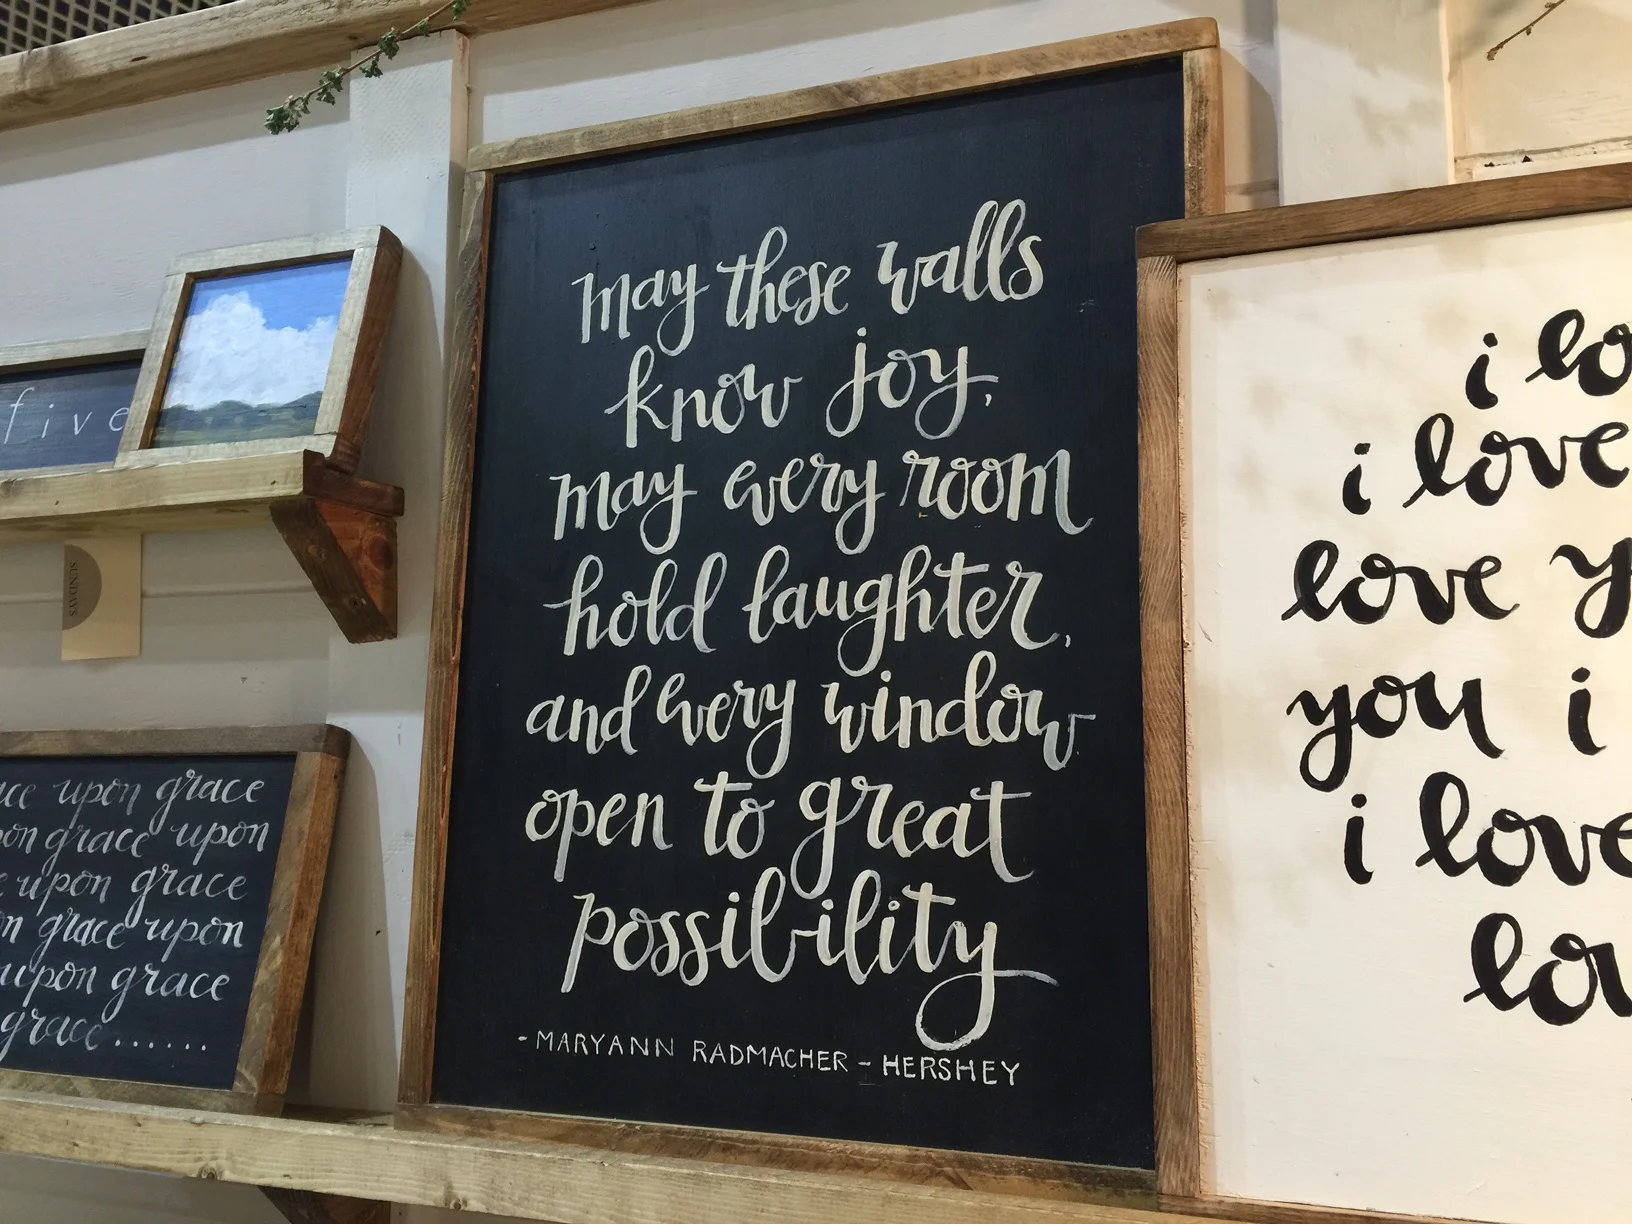 may these walls
know joy,
may every room
hold laughter,
and every window
open to great
possibility
- MARYANN RADMACHER - HERSHEY
five
SUNDAYS
upon grace
grace upon
upon grace
grace upon
upon grace
grace......
i
i love
love
you i
i love